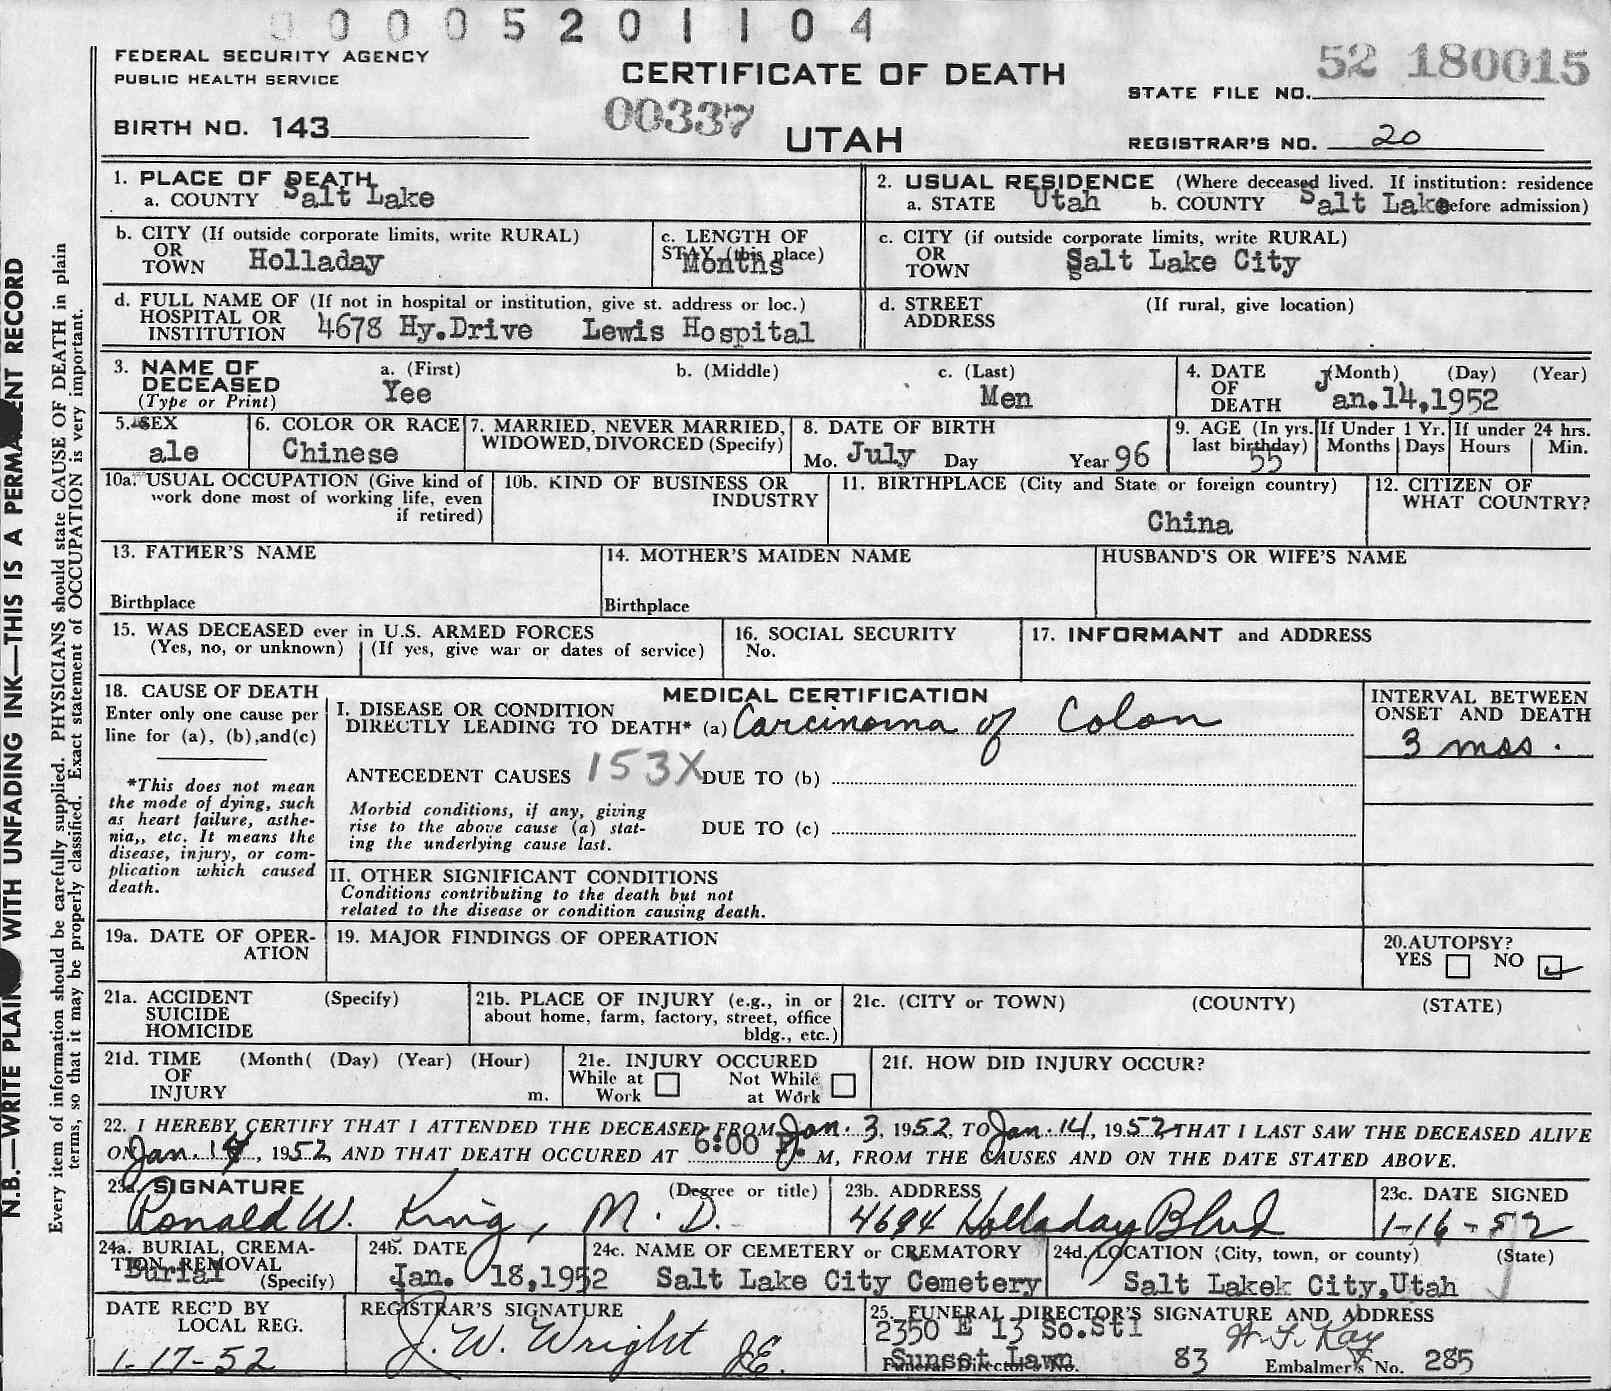 0 0 0 0 5 2 0 1 1 0 4
FEDERAL SECURITY AGENCY
PUBLIC HEALTH SERVICE
CERTIFICATE OF DEATH
52 180015
STATE FILE NO.
BIRTH NO. 143
00337
UTAH
REGISTRAR'S NO. 20
1. PLACE OF DEATH
a. COUNTY Salt Lake
2. USUAL RESIDENCE (Where deceased lived. If institution: residence
a. STATE Utah b. COUNTY Salt Lake before admission)
b. CITY (If outside corporate limits, write RURAL)
OR
TOWN Holladay
c. LENGTH OF
STAY (this place)
Months
c. CITY (if outside corporate limits, write RURAL)
OR
TOWN Salt Lake City
d. FULL NAME OF (If not in hospital or institution, give st. address or loc.)
HOSPITAL OR
INSTITUTION 4678 Hy.Drive Lewis Hospital
d. STREET (If rural, give location)
ADDRESS
3. NAME OF a. (First) b. (Middle) c. (Last)
DECEASED Yee Men
(Type or Print)
4. DATE (Month) (Day) (Year)
OF
DEATH Jan.14,1952
5. SEX
ale
6. COLOR OR RACE
Chinese
7. MARRIED, NEVER MARRIED,
WIDOWED, DIVORCED (Specify)
8. DATE OF BIRTH
Mo. July Day Year 96
9. AGE (In yrs.
last birthday)
55
If Under 1 Yr.
Months Days
If under 24 hrs.
Hours Min.
10a. USUAL OCCUPATION (Give kind of
work done most of working life, even
if retired)
10b. KIND OF BUSINESS OR
INDUSTRY
11. BIRTHPLACE (City and State or foreign country)
China
12. CITIZEN OF
WHAT COUNTRY?
13. FATHER'S NAME
Birthplace
14. MOTHER'S MAIDEN NAME
Birthplace
HUSBAND'S OR WIFE'S NAME
15. WAS DECEASED ever in U.S. ARMED FORCES
(Yes, no, or unknown) (If yes, give war or dates of service)
16. SOCIAL SECURITY
No.
17. INFORMANT and ADDRESS
18. CAUSE OF DEATH
Enter only one cause per
line for (a), (b),and(c)
*This does not mean
the mode of dying, such
as heart failure, asthe-
nia,, etc. It means the
disease, injury, or com-
plication which caused
death.
MEDICAL CERTIFICATION
I. DISEASE OR CONDITION
DIRECTLY LEADING TO DEATH* (a) Carcinoma of Colon
ANTECEDENT CAUSES 153X DUE TO (b)
Morbid conditions, if any, giving
rise to the above cause (a) stat-
ing the underlying cause last.
DUE TO (c)
II. OTHER SIGNIFICANT CONDITIONS
Conditions contributing to the death but not
related to the disease or condition causing death.
INTERVAL BETWEEN
ONSET AND DEATH
3 mos.
19a. DATE OF OPER-
ATION
19. MAJOR FINDINGS OF OPERATION
20.AUTOPSY?
YES NO
21a. ACCIDENT (Specify)
SUICIDE
HOMICIDE
21b. PLACE OF INJURY (e.g., in or
about home, farm, factory, street, office
bldg., etc.)
21c. (CITY or TOWN) (COUNTY) (STATE)
21d. TIME (Month( (Day) (Year) (Hour)
OF
INJURY m.
21e. INJURY OCCURED
While at Work Not While at Work
21f. HOW DID INJURY OCCUR?
22. I HEREBY CERTIFY THAT I ATTENDED THE DECEASED FROM Jan. 3, 1952, TO Jan. 14, 1952 THAT I LAST SAW THE DECEASED ALIVE
ON Jan. 14, 1952, AND THAT DEATH OCCURED AT 6:00 P. M, FROM THE CAUSES AND ON THE DATE STATED ABOVE.
23a. SIGNATURE (Degree or title)
Ronald W. King, M.D.
23b. ADDRESS
4694 Holladay Blvd
23c. DATE SIGNED
1-16-52
24a. BURIAL, CREMA-
TION, REMOVAL
Burial (Specify)
24b. DATE
Jan. 18,1952
24c. NAME OF CEMETERY or CREMATORY
Salt Lake City Cemetery
24d. LOCATION (City, town, or county) (State)
Salt Lakek City,Utah
DATE REC'D BY
LOCAL REG.
1-17-52
REGISTRAR'S SIGNATURE
J. W. Wright JE.
25. FUNERAL DIRECTOR'S SIGNATURE AND ADDRESS
2350 E 13 So.St1
Sunset Lawn
Funeral Director's No. 83 Embalmer's No. 285
N.B.—WRITE PLAIN WITH UNFADING INK—THIS IS A PERMANENT RECORD
Every item of information should be carefully supplied. PHYSICIANS should state CAUSE OF DEATH in plain
terms, so that it may be properly classified. Exact statement of OCCUPATION is very important.